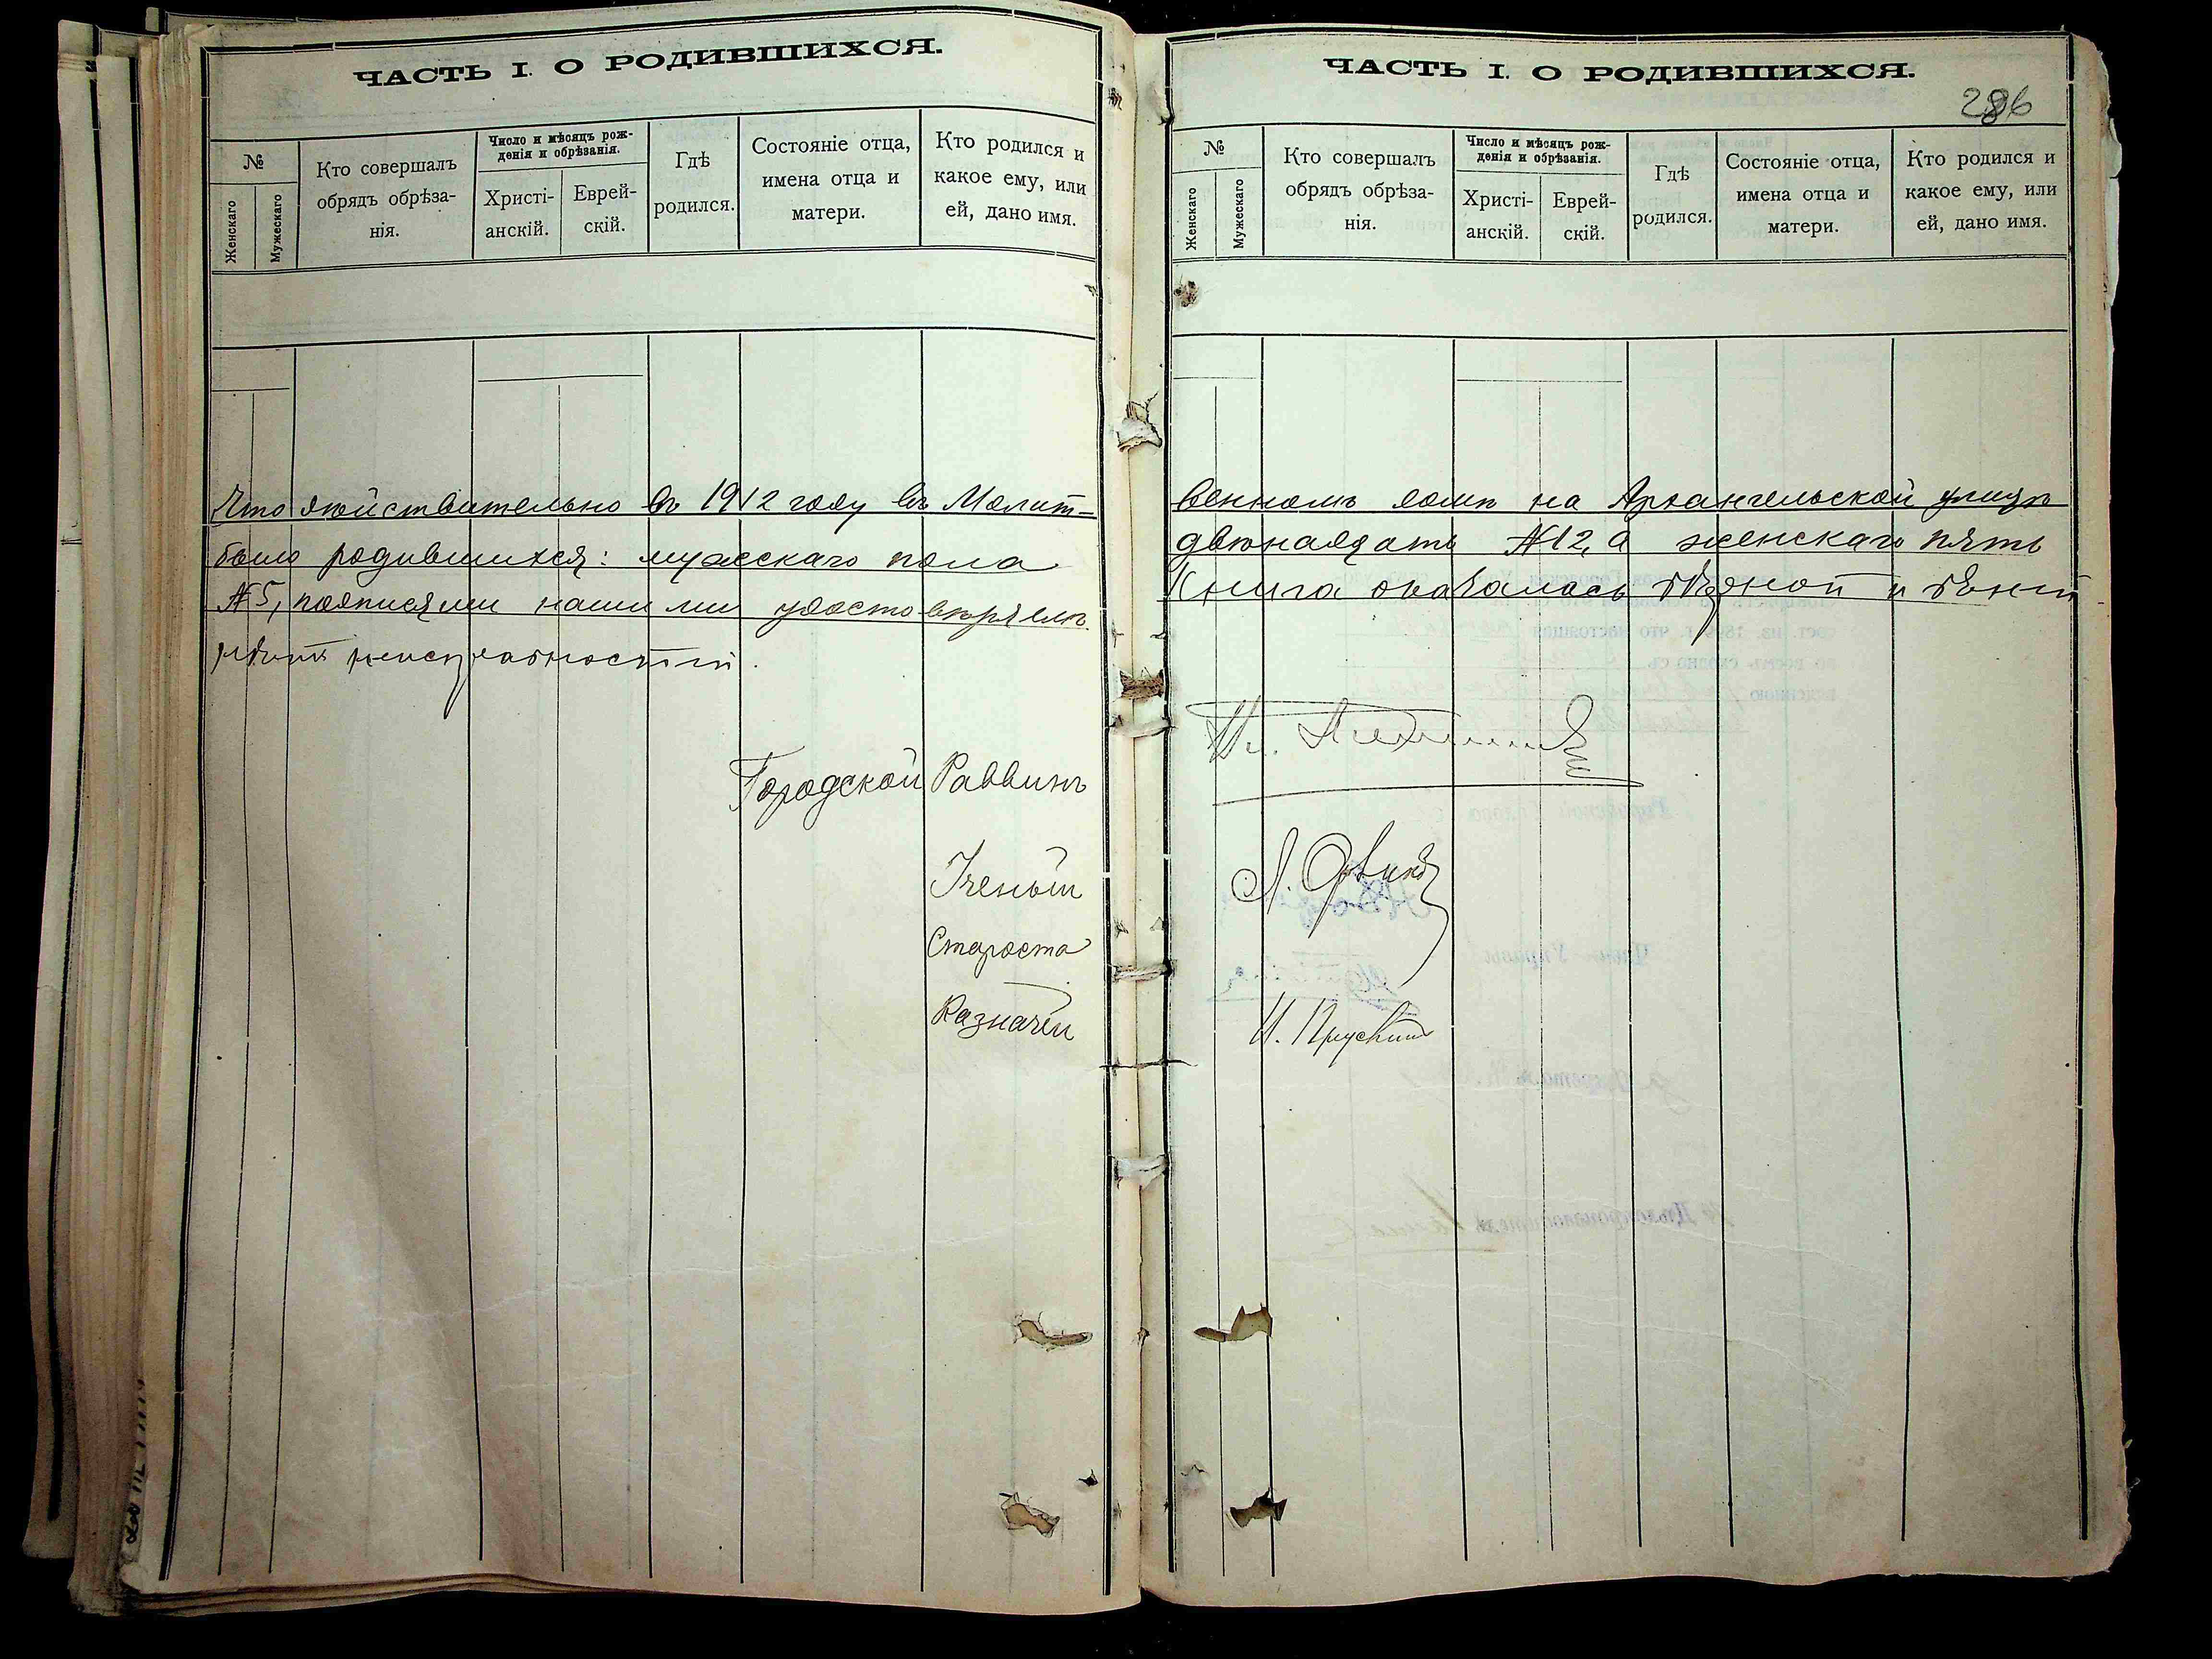 ЧАСТЬ I. О РОДИВШИХСЯ.
№
Женскаго
Мужескаго
Кто совершалъ
обрядъ обрѣза-
нія.
Число и мѣсяцъ рож-
денія и обрѣзанія.
Христі-
анскій.
Еврей-
скій.
Гдѣ
родился.
Состояніе отца,
имена отца и
матери.
Кто родился и
какое ему, или
ей, дано имя.
Что дѣйствительно въ 1912 году въ Молит-
было родившихся: мужескаго пола
№ 5, подписями нашими удостовѣряемъ.
Городской Раввинъ
Ученый
Староста
Казначей
ЧАСТЬ I. О РОДИВШИХСЯ.
286
№
Женскаго
Мужескаго
Кто совершалъ
обрядъ обрѣза-
нія.
Число и мѣсяцъ рож-
денія и обрѣзанія.
Христі-
анскій.
Еврей-
скій.
Гдѣ
родился.
Состояніе отца,
имена отца и
матери.
Кто родился и
какое ему, или
ей, дано имя.
венномъ домѣ на Архангельской улицѣ
двѣнадцать №12, а женскаго пять
Книга оказалась и
И. Прускин